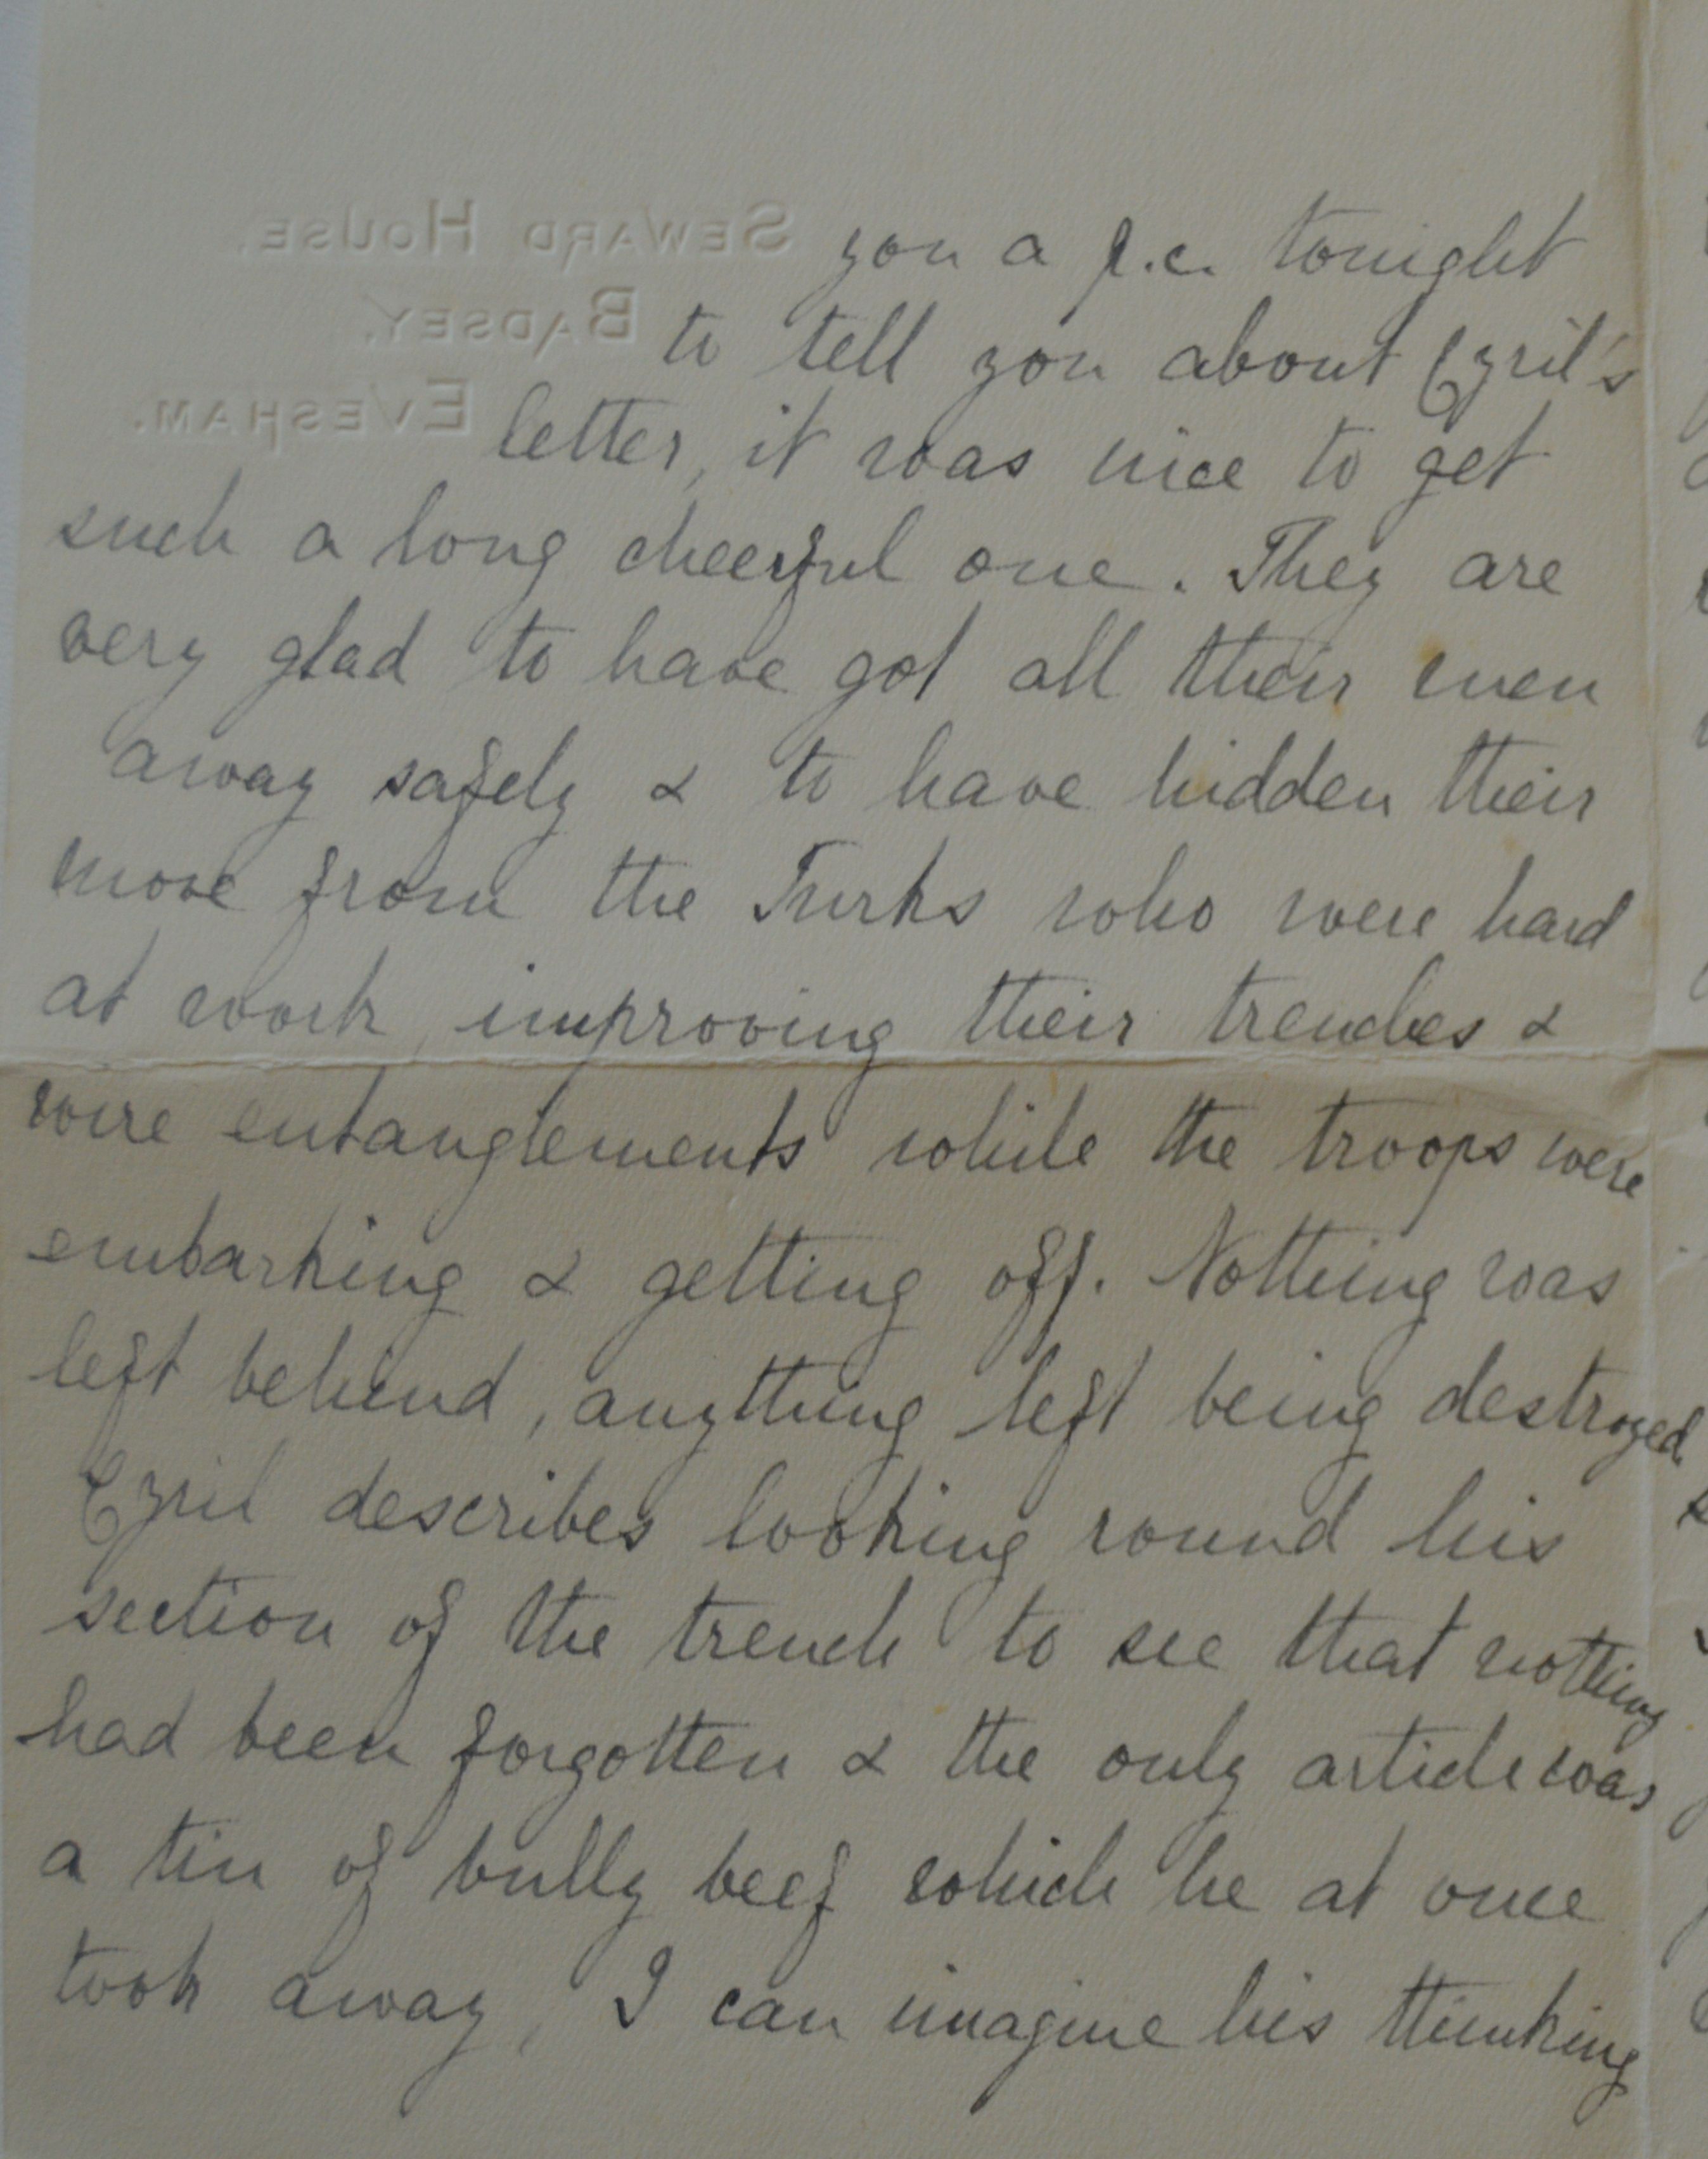 SEWARD HOUSE.
BADSEY.
EVESHAM.
you a p.c. tonight
to tell you about Cyril's
letter, it was nice to get
such a long cheerful one. They are
very glad to have got all their men
away safely & to have hidden their
move from the Turks who were hard
at work improving their trenches &
wire entanglements while the troops were
embarking & getting off. Nothing was
left behind, anything left being destroyed
Cyril describes looking round his
section of the trench to see that nothing
had been forgotten & the only article was
a tin of bully beef which he at once
took away, I can imagine his thinking